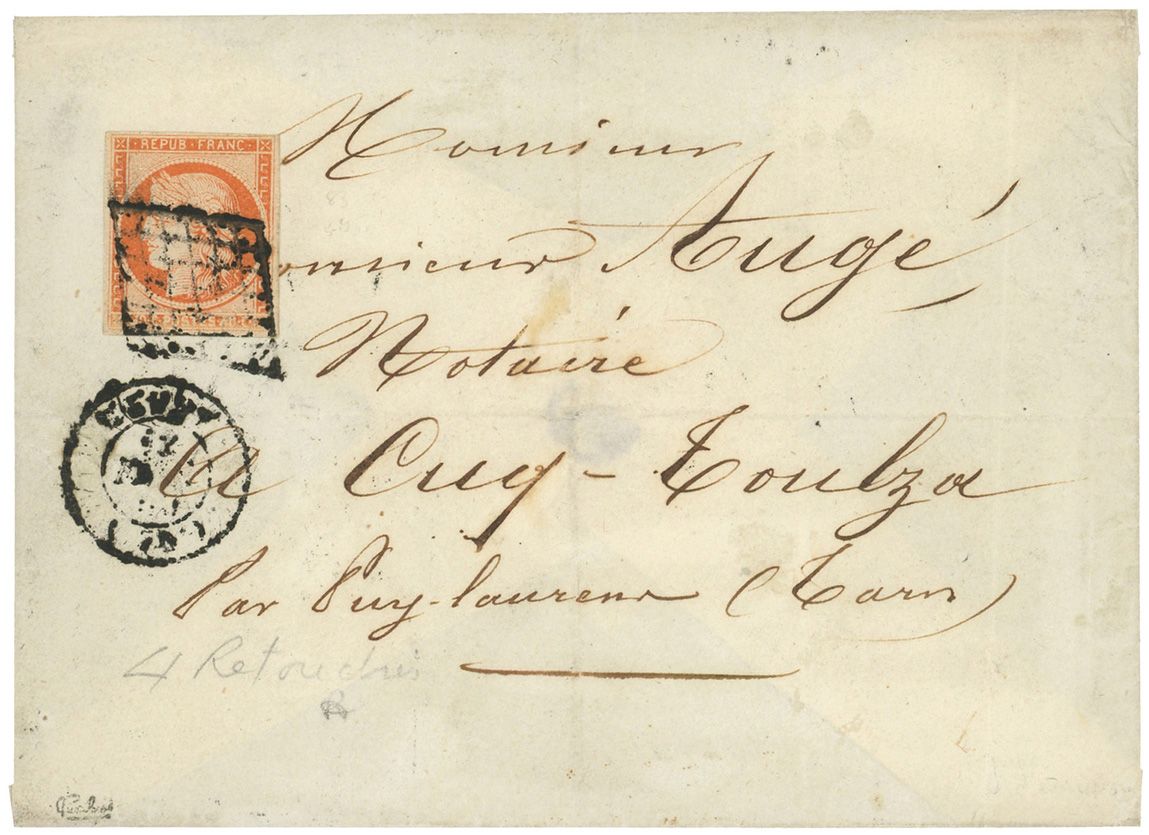 REPUB·FRANC·
Monsieur
Monsieur Augé
Notaire
A Cuq-Toulza
Par Puy-laurens (Tarn)
4 Retouchés